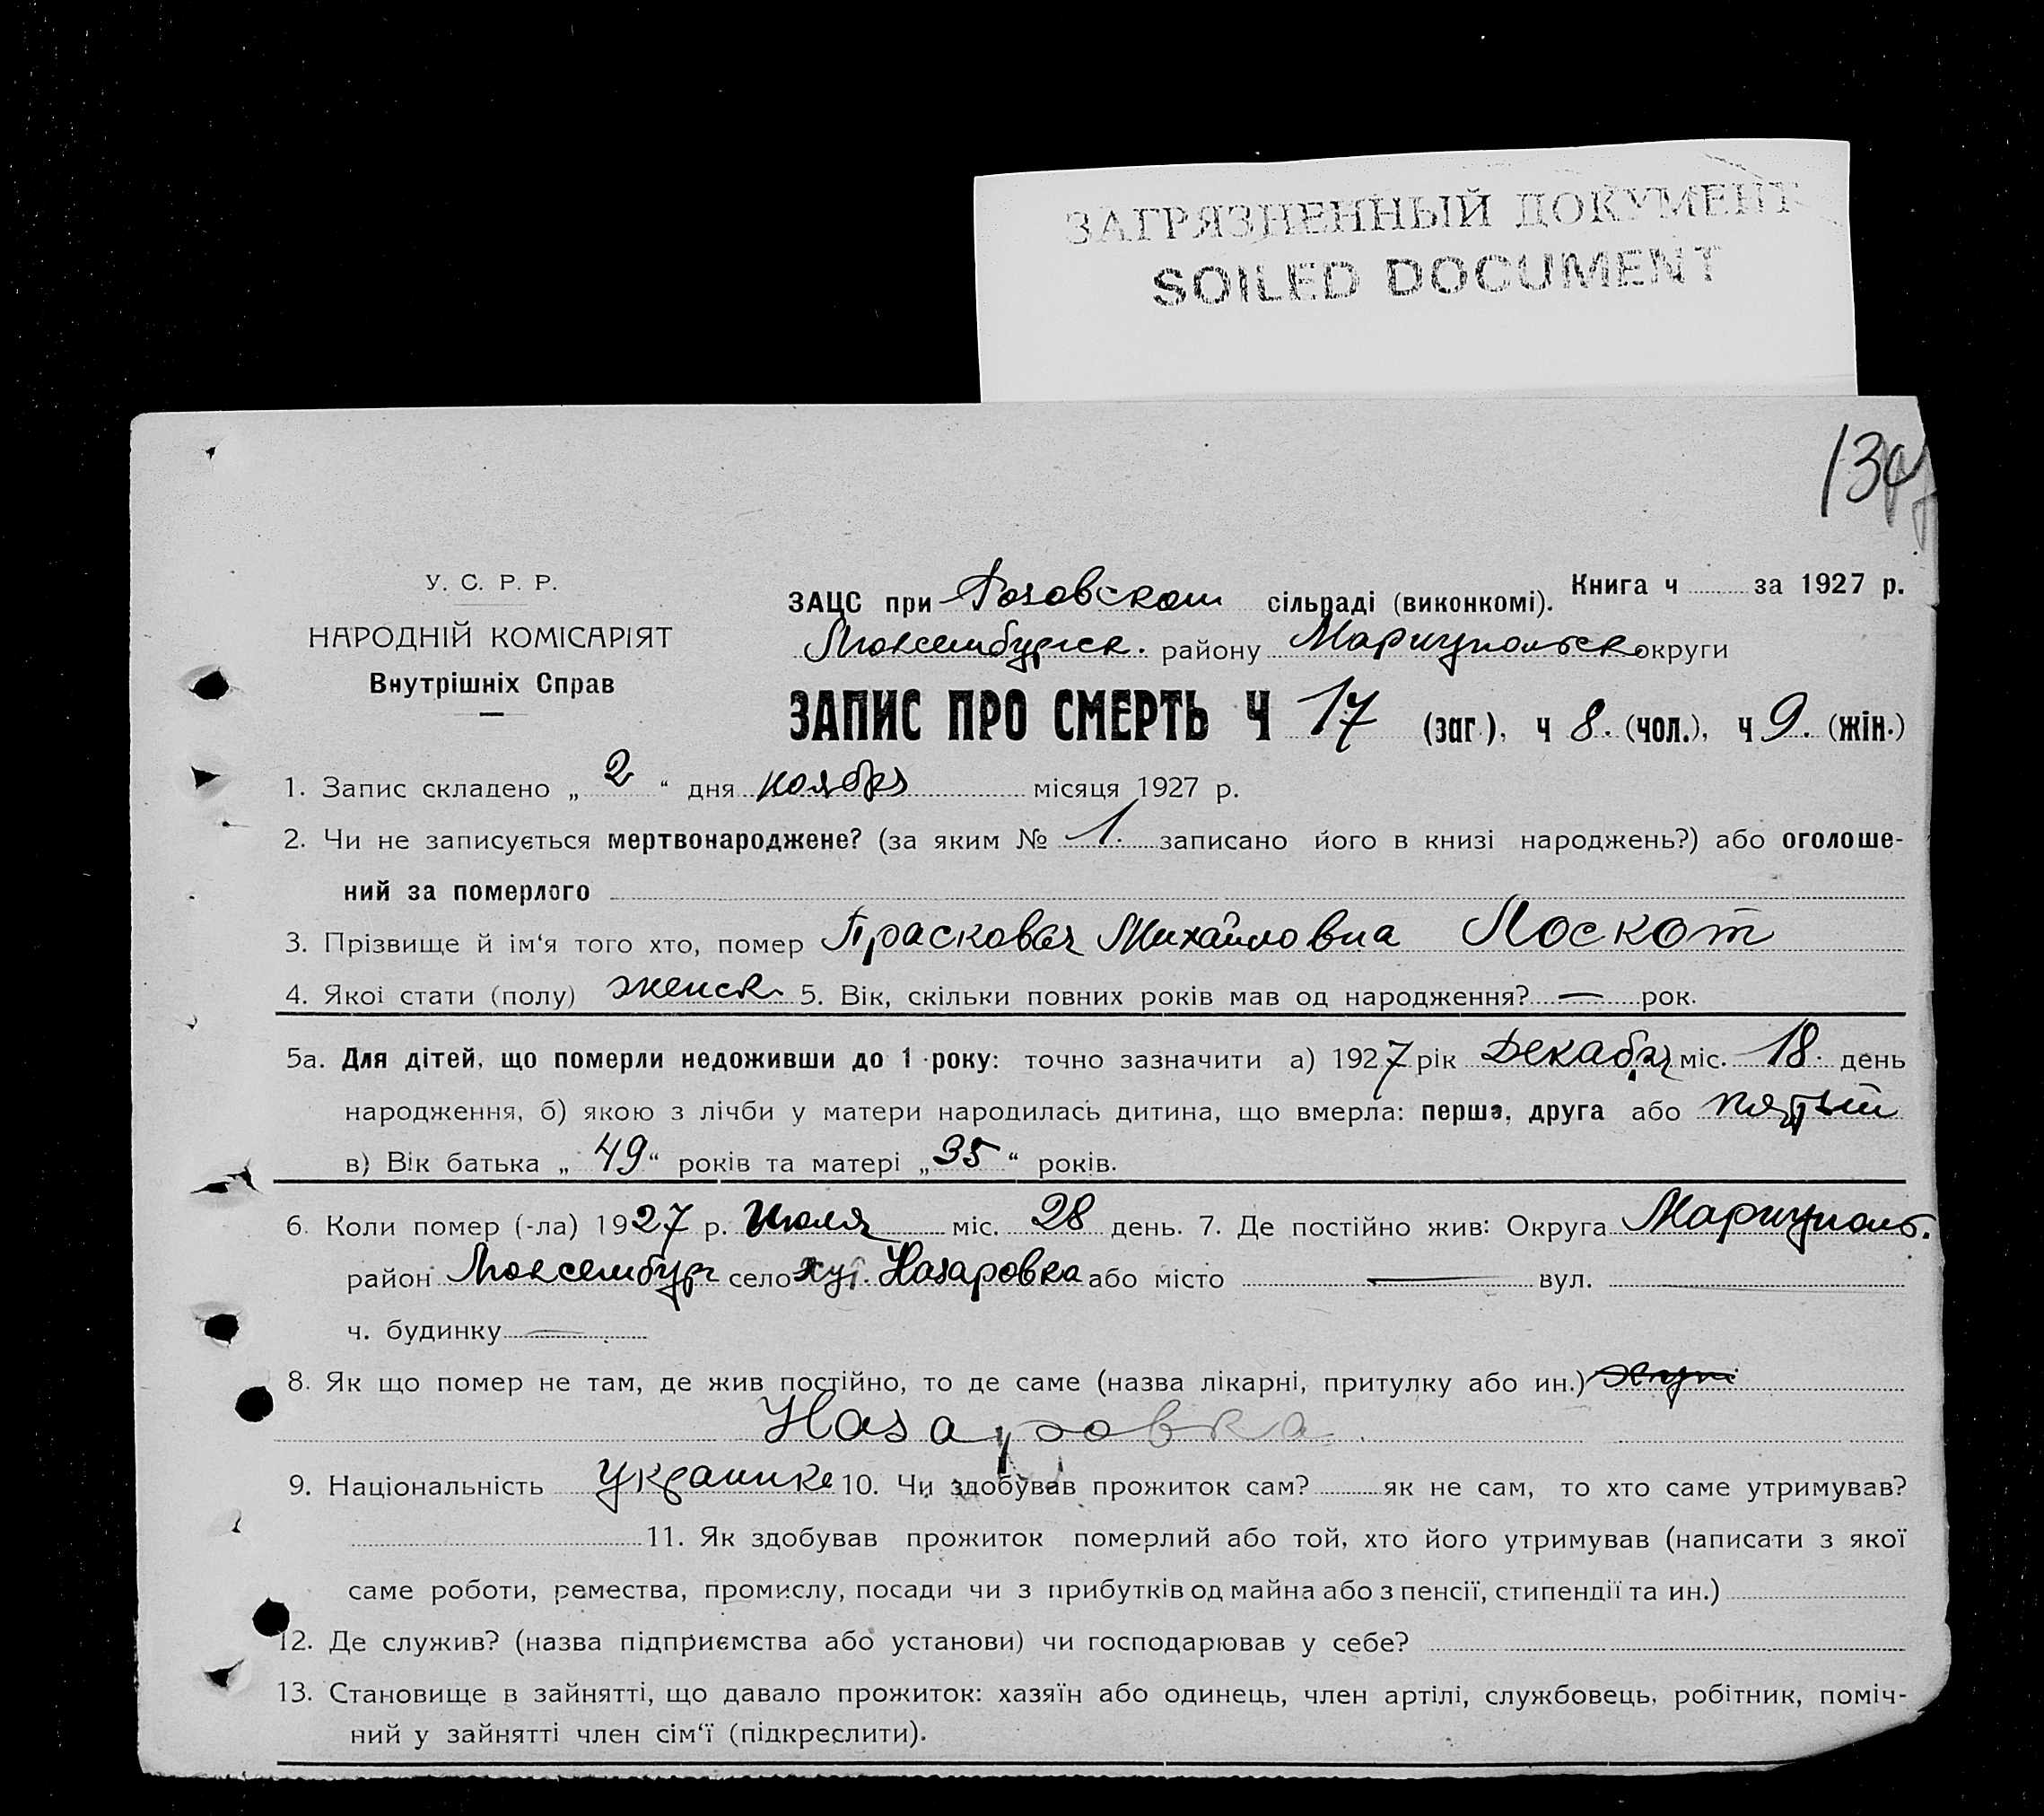 ЗАГРЯЗНЕННЫЙ ДОКУМЕНТ
SOILED DOCUMENT
134
У. С. Р. Р.
НАРОДНІЙ КОМІСАРІЯТ
Внутрішніх Справ
Книга ч за 1927 р.
ЗАЦС при Розовском сільраді (виконкомі).
Люксембургск. району Мариупольск округи
ЗАПИС ПРО СМЕРТЬ Ч 17 (заг.), ч 8. (чол.), ч 9. (жін.)
1. Запис складено „ 2 “ дня ноября місяця 1927 р.
2. Чи не записується мертвонароджене? (за яким № 1. записано його в книзі народжень?) або оголоше-
ний за померлого
3. Прізвище й ім‘я того хто, помер Прасковья Михайловна Лоскот
4. Якої стати (полу) женск 5. Вік, скільки повних років мав од народження? — рок.
5а. Для дітей, що померли недоживши до 1 року: точно зазначити а) 1927 рік Декабря міс. 18. день
народження, б) якою з лічби у матери народилась дитина, що вмерла: перша, друга або пятый
в) Вік батька „ 49 “ років та матері „ 35 “ років.
6. Коли помер (-ла) 1927 р. Июля міс. 28 день. 7. Де постійно жив: Округа Мариуполь.
район Люксембург село хут. Назаровка або місто — вул.
ч. будинку —
8. Як що помер не там, де жив постійно, то де саме (назва лікарні, притулку або ин.) хут
Назаровка
9. Національність Украинка 10. Чи здобував прожиток сам? як не сам, то хто саме утримував?
11. Як здобував прожиток померлий або той, хто його утримував (написати з якої
саме роботи, ремества, промислу, посади чи з прибутків од майна або з пенсії, стипендії та ин.)
12. Де служив? (назва підприємства або установи) чи господарював у себе?
13. Становище в зайнятті, що давало прожиток: хазяїн або одинець, член артілі, службовець, робітник, поміч-
ний у зайнятті член сім‘ї (підкреслити).